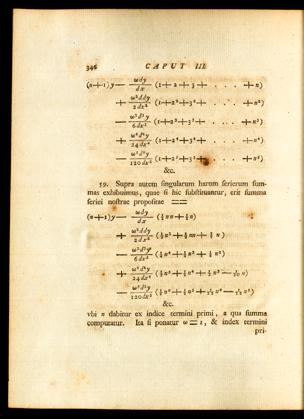 346 CAPUT III.
(n+1)y — ωdy/dx (1+2+3+ . . . . +n)
+ ω²ddy/2dx² (1+2²+3²+ . . . . +n²)
— ω³d³y/6dx³ (1+2³+3³+ . . . . +n³)
+ ω⁴d⁴y/24dx⁴ (1+2⁴+3⁴+ . . . . +n⁴)
— ω⁵d⁵y/120dx⁵ (1+2⁵+3⁵+ . . . +n⁵)
&c.
59. Supra autem singularum harum serierum sum-
mas exhibuimus, quae si hic substituantur, erit summa
seriei nostrae propositae =
(n+1)y — ωdy/dx (½nn+½n)
+ ω²ddy/2dx² (⅓n³+½nn+⅙n)
— ω³d³y/6dx³ (¼n⁴+½n³+¼n²)
+ ω⁴d⁴y/24dx⁴ (⅕n⁵+½n⁴+⅓n³—1/30 n)
— ω⁵d⁵y/120dx⁵ (⅙n⁶+½n⁵+5/12 n⁴—1/12 n²)
&c.
vbi n dabitur ex indice termini primi, a quo summa
computatur. Ita si ponatur ω=1, & index termini
pri-